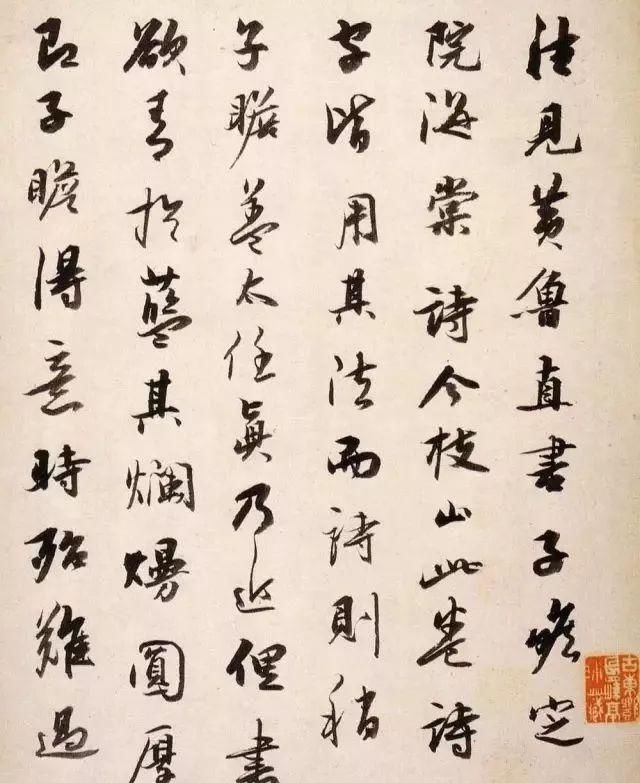 往見黃魯直書子瞻定
院海棠詩今枝山此卷詩
字皆用其法而詩則稍
子瞻蓋太任眞乃近俚書
欲青於藍其爛熳圓厚
即子瞻得意時殆難過